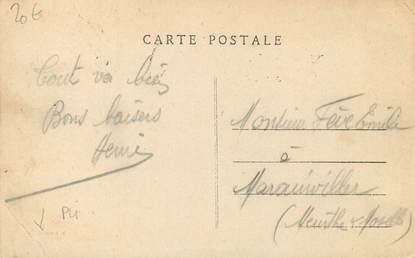 20€
CARTE POSTALE
Tout va bien
Bons baisers
Henri
Monsieur Fève Emile
à
Marainviller
(Meurthe & Moselle)
Pli